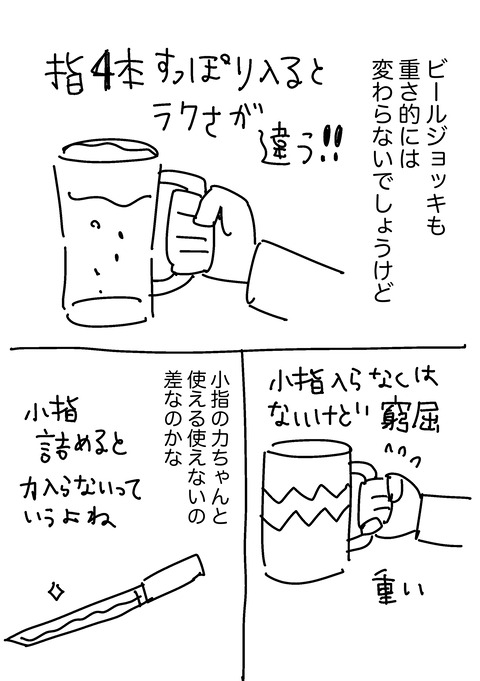 ビールジョッキも
重さ的には
変わらないでしょうけど
指4本すっぽり入ると
ラクさが
違う!!
小指入らなくは
ないけど 窮屈
重い
小指の力ちゃんと
使える使えないの
差なのかな
小指
詰めると
力入らないって
いうよね